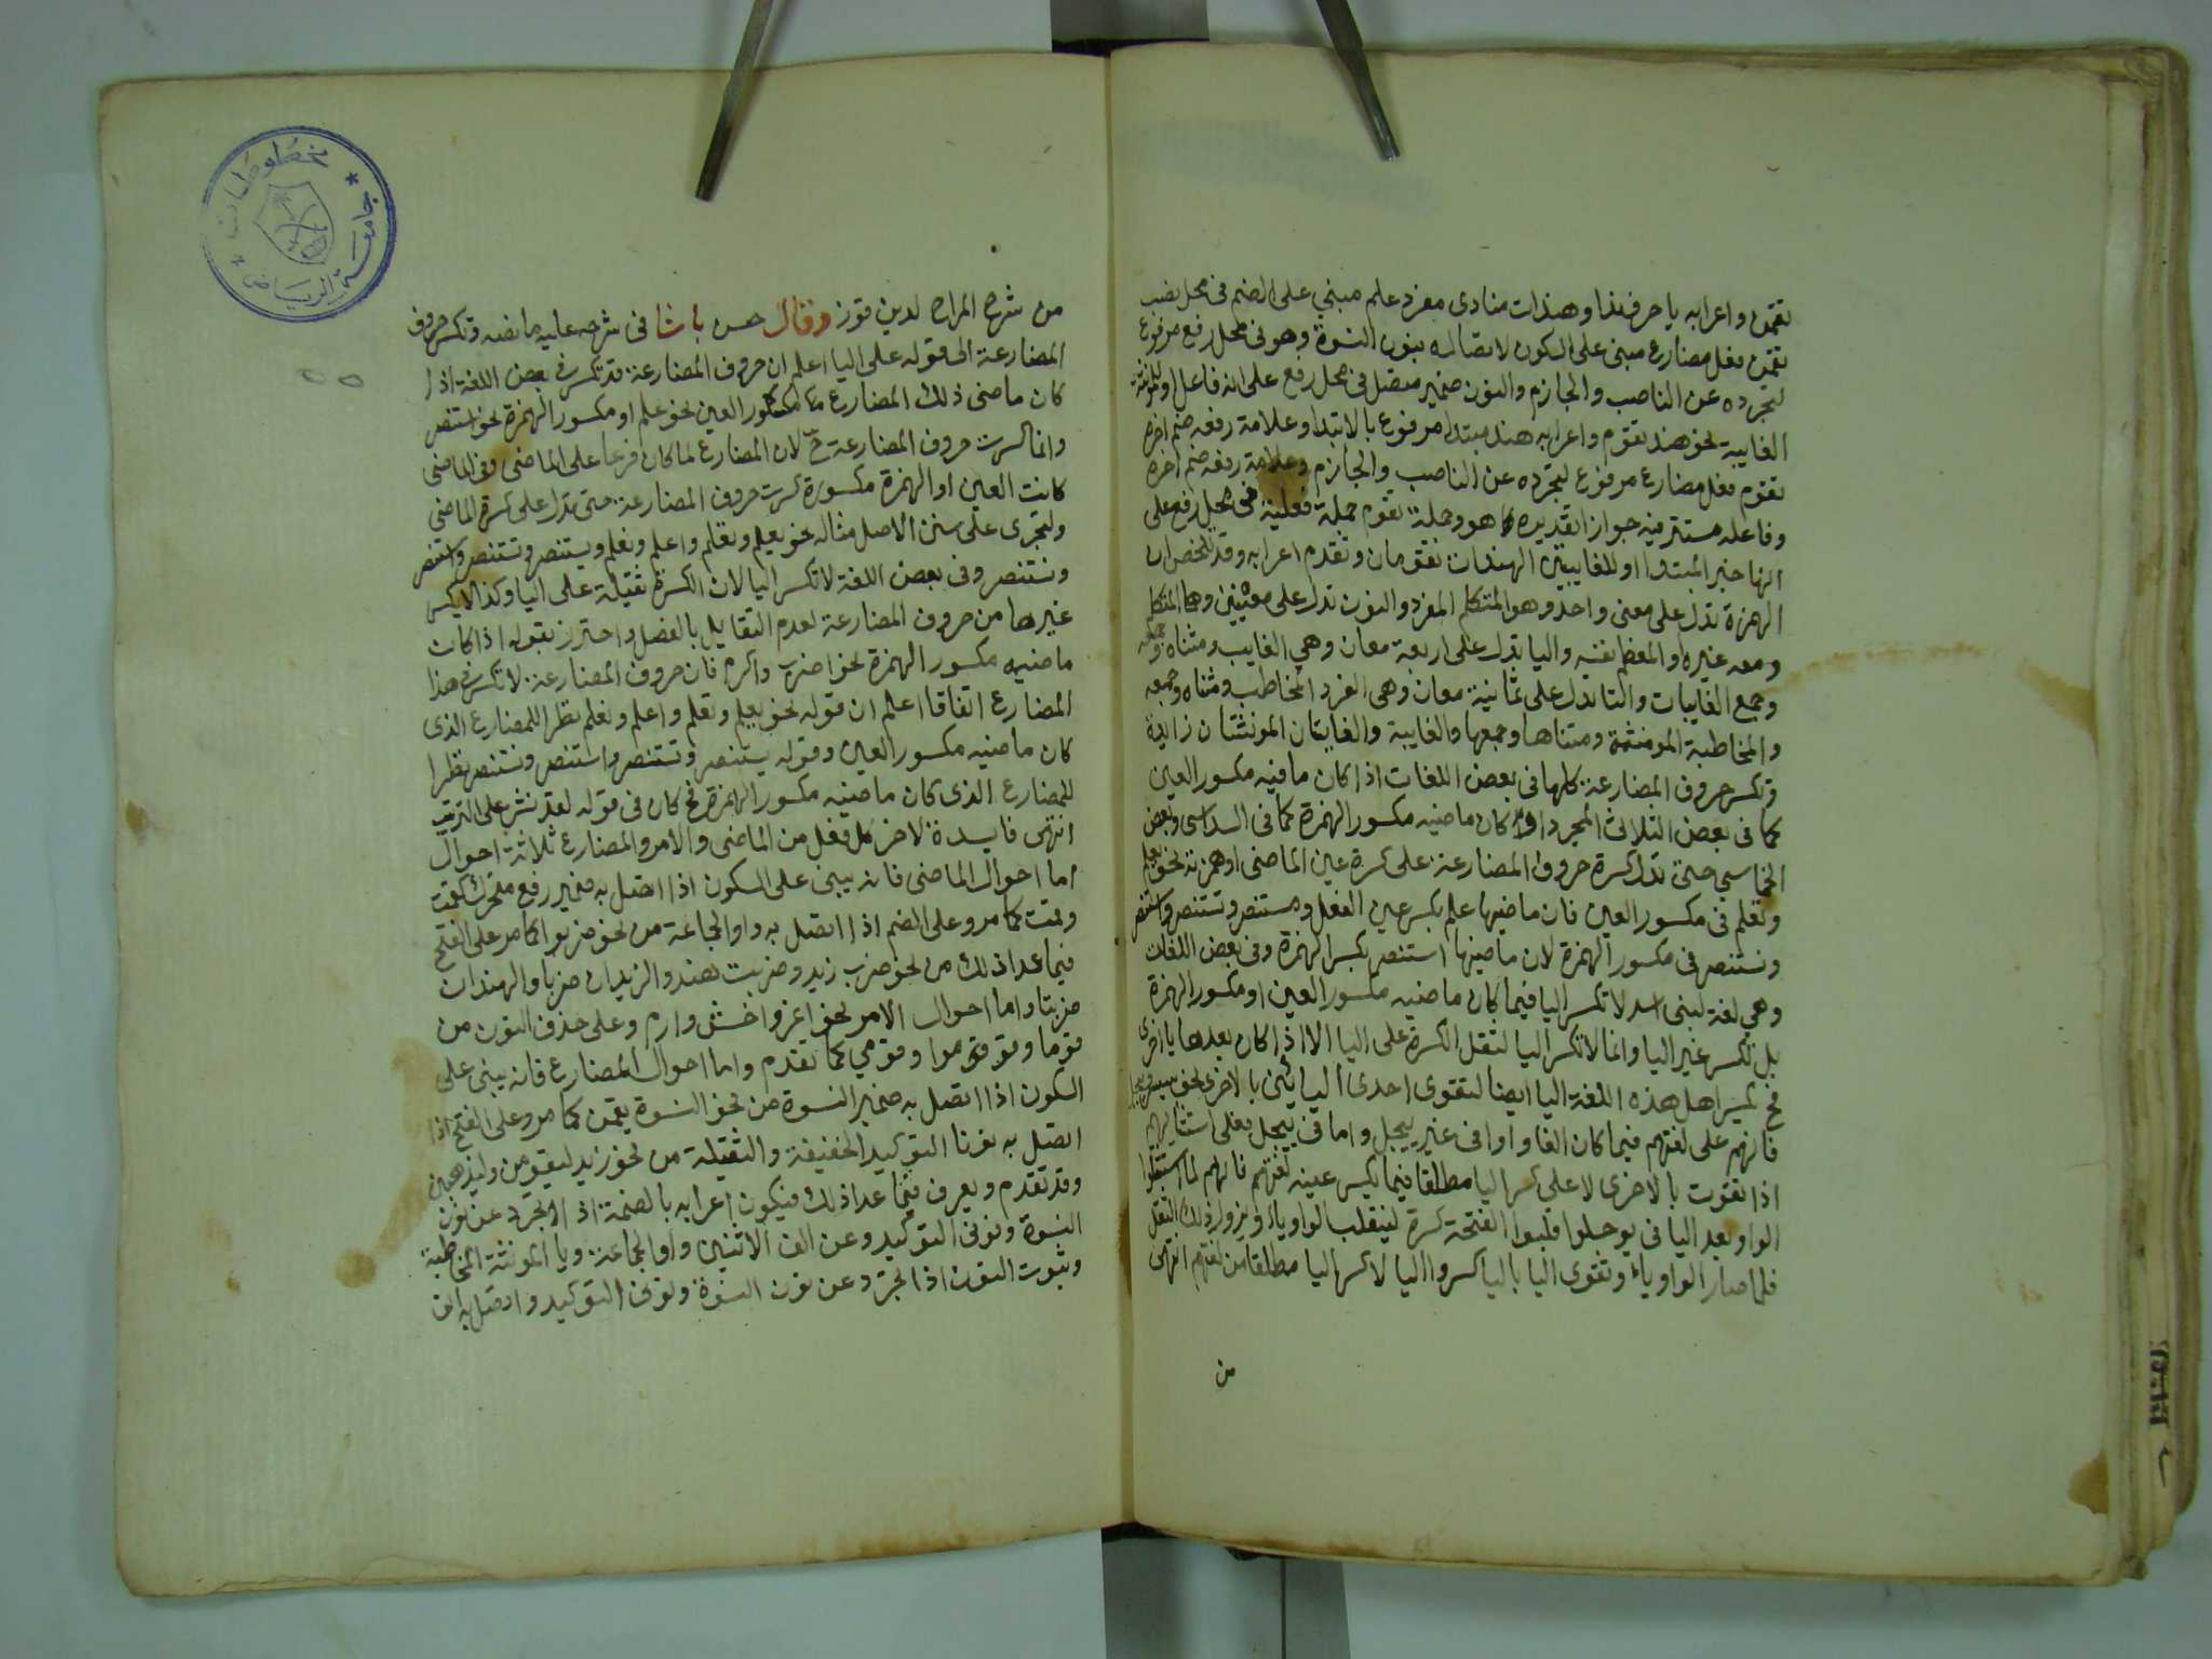 تقمن واعرابه يا حرف ندا وهندات منادى مفرد علم مبني على الضم فى محل نصب
تقمن فعل مضارع مبنى على السكون لاتصاله بنون النسوة وهو فى محل رفع مرفوع
لتجرده عن الناصب والجازم والنون ضمير متصل فى محل رفع على انه فاعل او للمونثة
الغايبة نحو هند تقوم واعرابه هند مبتدا مرفوع بالابتدا وعلامة رفعه ضم اخره
تقوم فعل مضارع مرفوع لتجرده عن الناصب والجازم وعلامة رفعه ضم اخره
وفاعله مستتر فيه جوازا تقديره هو وجملة تقوم جملة فعلية فى محل رفع على
انها خبر المبتدا او للغايبتين الهندان تقومان وتقدم اعرابه وقد تلخص ان
الهمزة تدل على معنى واحد وهو المتكلم المفرد والنون تدل على معنيين وهما المتكلم
ومعه غيره او المعظم نفسه واليا تدل على اربعة معان وهي الغايب ومثناه وجمعه
وجمع الغايبات والتا تدل على ثمانية معان وهى المفرد المخاطب ومثناه وجمعه
والمخاطبة المونثة ومثناها وجمعها والغايبة والغايبتان المونثتان زايدة
وتكسر حروف المضارعة كلها فى بعض اللغات اذا كان ماضيه مكسور العين
كما فى بعض الثلاثى المجرد او كان ماضيه مكسور الهمزة كما فى السداسى وبعض
الخماسي حتى تدل كسرة حروف المضارعة على كسرة عين الماضى او همزته نحو يعلم
وتعلم فى مكسور العين فان ماضيها علم بكسر عين الفعل ويستنصر وتستنصر واستنصر
ونستنصر فى مكسور الهمزة لان ماضيها استنصر بكسر الهمزة وفى بعض اللغات
وهي لغة لبنى اسد لا تكسر اليا فيما كان ماضيه مكسور العين او مكسور الهمزة
بل تكسر غير اليا وانما لا تكسر اليا لثقل الكسرة على اليا الا اذا كان بعدها يا اخرى
فح تكسر اهل هذه اللغة اليا ايضا لتقوى احدى اليائين بالاخرى نحو ييجل
فانهم على لغتهم فيما كان الفا واوا فى غير ييجل واما فى ييجل فعلى استثنا
اذا تقوت بالاخرى لا على كسر اليا مطلقا فيما يكسر عينه لغتهم فانهم لما استثقلوا
الواو بعد اليا فى يوجلوا قلبوا الفتحة كسرة لينقلب الواو ياء ويزول ذلك الثقل
فلما صار الواو ياء وتقوى اليا باليا كسروا اليا لا كسر اليا مطلقا من لغتهم انتهى
من
من شرح المراح لدين قوز وقال حسن باشا فى شرحه عليه ما نصه وتكسر حروف
المضارعة الى قوله على اليا اعلم ان حروف المضارعة قد تكسر فى بعض اللغة اذا
كان ماضى ذلك المضارع مكسور العين نحو علم او مكسور الهمزة نحو استنصر
وانما كسرت حروف المضارعة ح لان المضارع لما كان فرعا على الماضى وفى الماضى
كانت العين او الهمزة مكسورة كسرت حروف المضارعة حتى تدل على كسرة الماضى
وليجرى على سنن الاصل مثاله نحو يعلم وتعلم واعلم ونعلم ويستنصر وتستنصر واستنصر
ونستنصر وفى بعض اللغة لا تكسر اليا لان الكسرة ثقيلة على اليا وكذا لا يكسر
غيرها من حروف المضارعة لعدم التقايل بالفصل واحترز بقوله اذا كان
ماضيه مكسور الهمزة نحو اضرب واكرم فان حروف المضارعة لا تكسر فى هذا
المضارع اتفاقا اعلم ان قوله نحو يعلم وتعلم واعلم ونعلم نظرا للمضارع الذى
كان ماضيه مكسور العين وقوله يستنصر وتستنصر واستنصر ونستنصر نظرا
للمضارع الذى كان ماضيه مكسور الهمزة فح كان فى قوله لف نشر على الترتيب
انتهى فايدة لاخر كل فعل من الماضى والامر والمضارع ثلاثة احوال
اما احوال الماضى فانه يبنى على السكون اذا اتصل به ضمير رفع متحرك كقمت
وقمت كما مر وعلى الضم اذا اتصل به واو الجماعة من نحو ضربوا كما مر على الفتح
فيما عدا ذلك من نحو ضرب زيد وضربت هند والزيدان ضربا والهندان
ضربتا واما احوال الامر نحو اغز واخش وارم وعلى حذف النون من
قوما وقوموا وقومي كما تقدم واما احوال المضارع فانه يبنى على
السكون اذا اتصل به ضمير النسوة من نحو النسوة يقمن كما مر وعلى الفتح اذا
اتصل به نونا التوكيد الخفيفة والثقيلة من نحو زيد ليقومن وليذهبن
وقد تقدم ويعرف فيما عدا ذلك فيكون اعرابه بالضمة اذا تجرد عن نون
النسوة ونونى التوكيد وعن الف الاثنين واو الجماعة ويا المونثة المخاطبة
وثبوت النون اذا تجرد عن نون النسوة ونونى التوكيد واتصل به الف
مخطوطات
جامعة الرياض